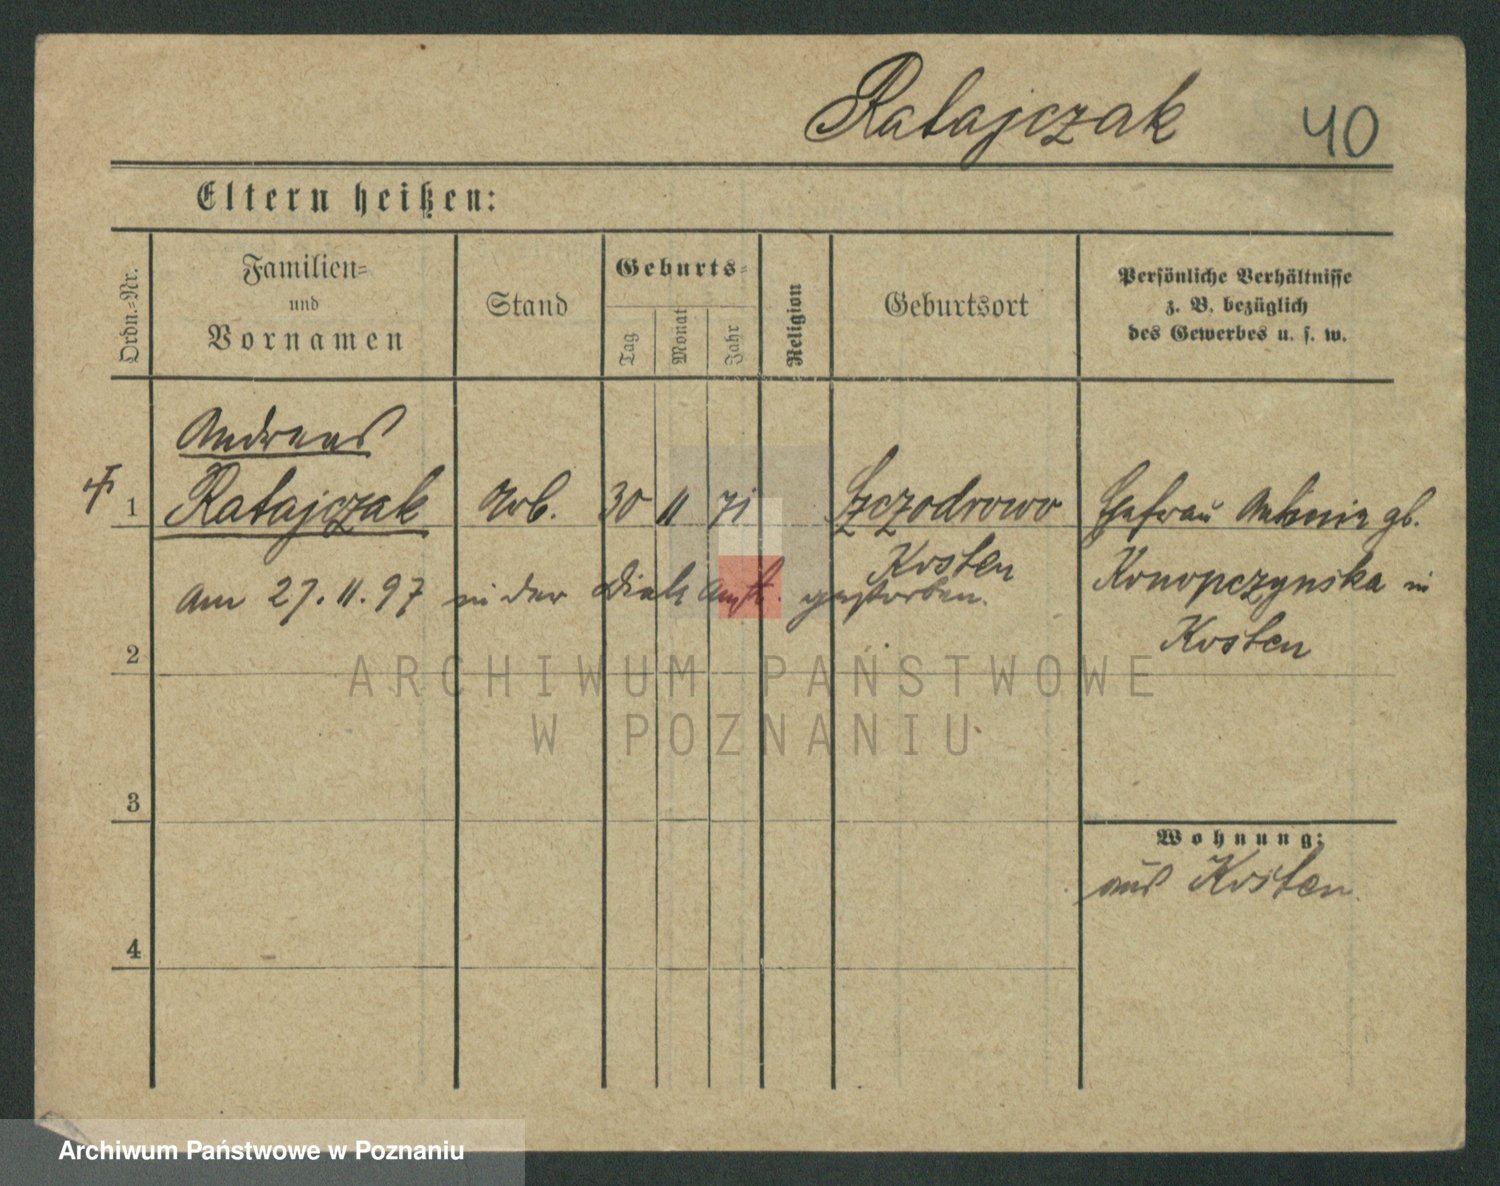 Ratajczak 40
Eltern heißen:
Ordn.-Nr.
Familien-
und
Vornamen
Stand
Geburts-
Tag
Monat
Jahr
Religion
Geburtsort
Persönliche Verhältnisse
z. B. bezüglich
des Gewerbes u. s. w.
Andreas
1 Ratajczak Arb. 30 11 71 Szczodrowo Ehefrau Antonie gb.
Kosten Konopczynska in
am 27. 11. 97 in der Anst. gestorben.
Kosten
2
3
4
Wohnung:
aus Kosten.
ARCHIWUM PAŃSTWOWE
W POZNANIU
Archiwum Państwowe w Poznaniu